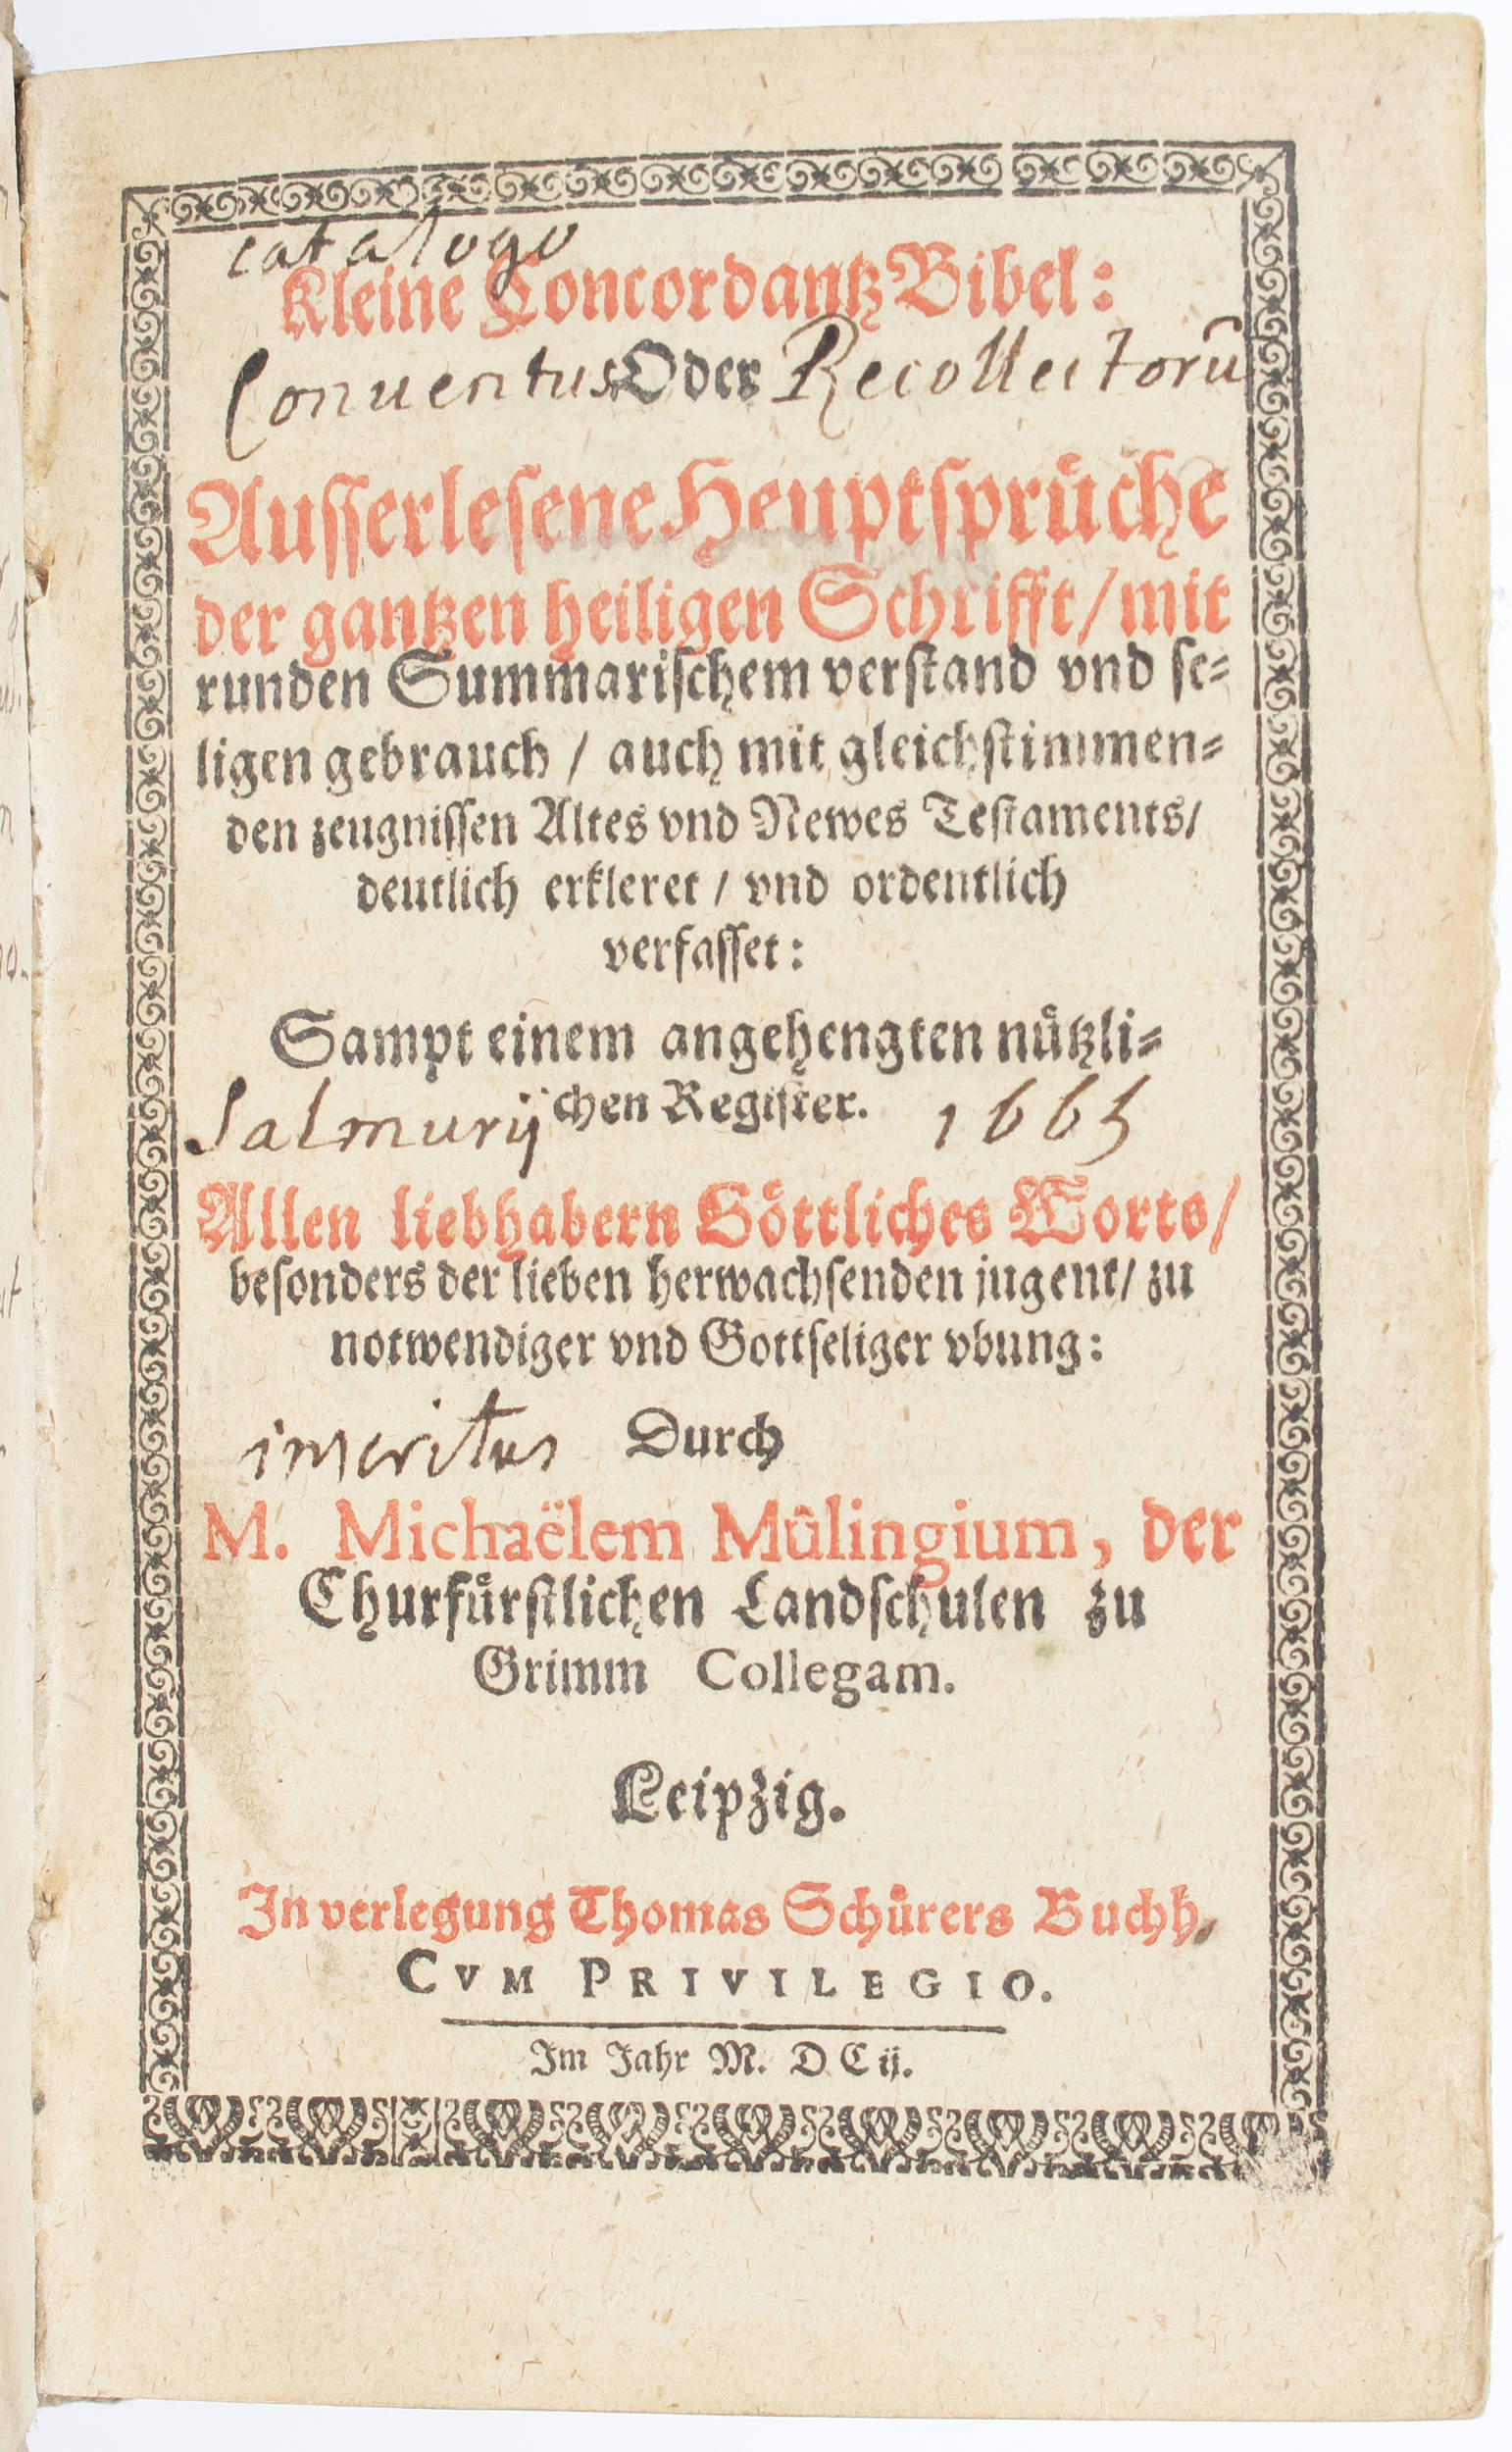 catalogo
Kleine Concordantz Bibel:
Conuentus Oder Recollectorũ
Ausserlesene Heuptsprüche
der gantzen heiligen Schrifft/ mit
runden Summarischem verstand vnd se-
ligen gebrauch / auch mit gleichstimmen-
den zeugnissen Altes vnd Newes Testaments/
deutlich erkleret / vnd ordentlich
verfasset:
Sampt einem angehengten nützli-
Salmurij chen Register. 1665
Allen liebhabern Göttliches Worts/
besonders der lieben herwachsenden jugent/ zu
notwendiger vnd Gottseliger vbung:
inscritus Durch
M. Michaëlem Mûlingium, der
Churfürstlichen Landschulen zu
Grimm Collegam.
Leipzig.
In verlegung Thomas Schürers Buchh.
CVM PRIVILEGIO.
Im Jahr M. D C ij.